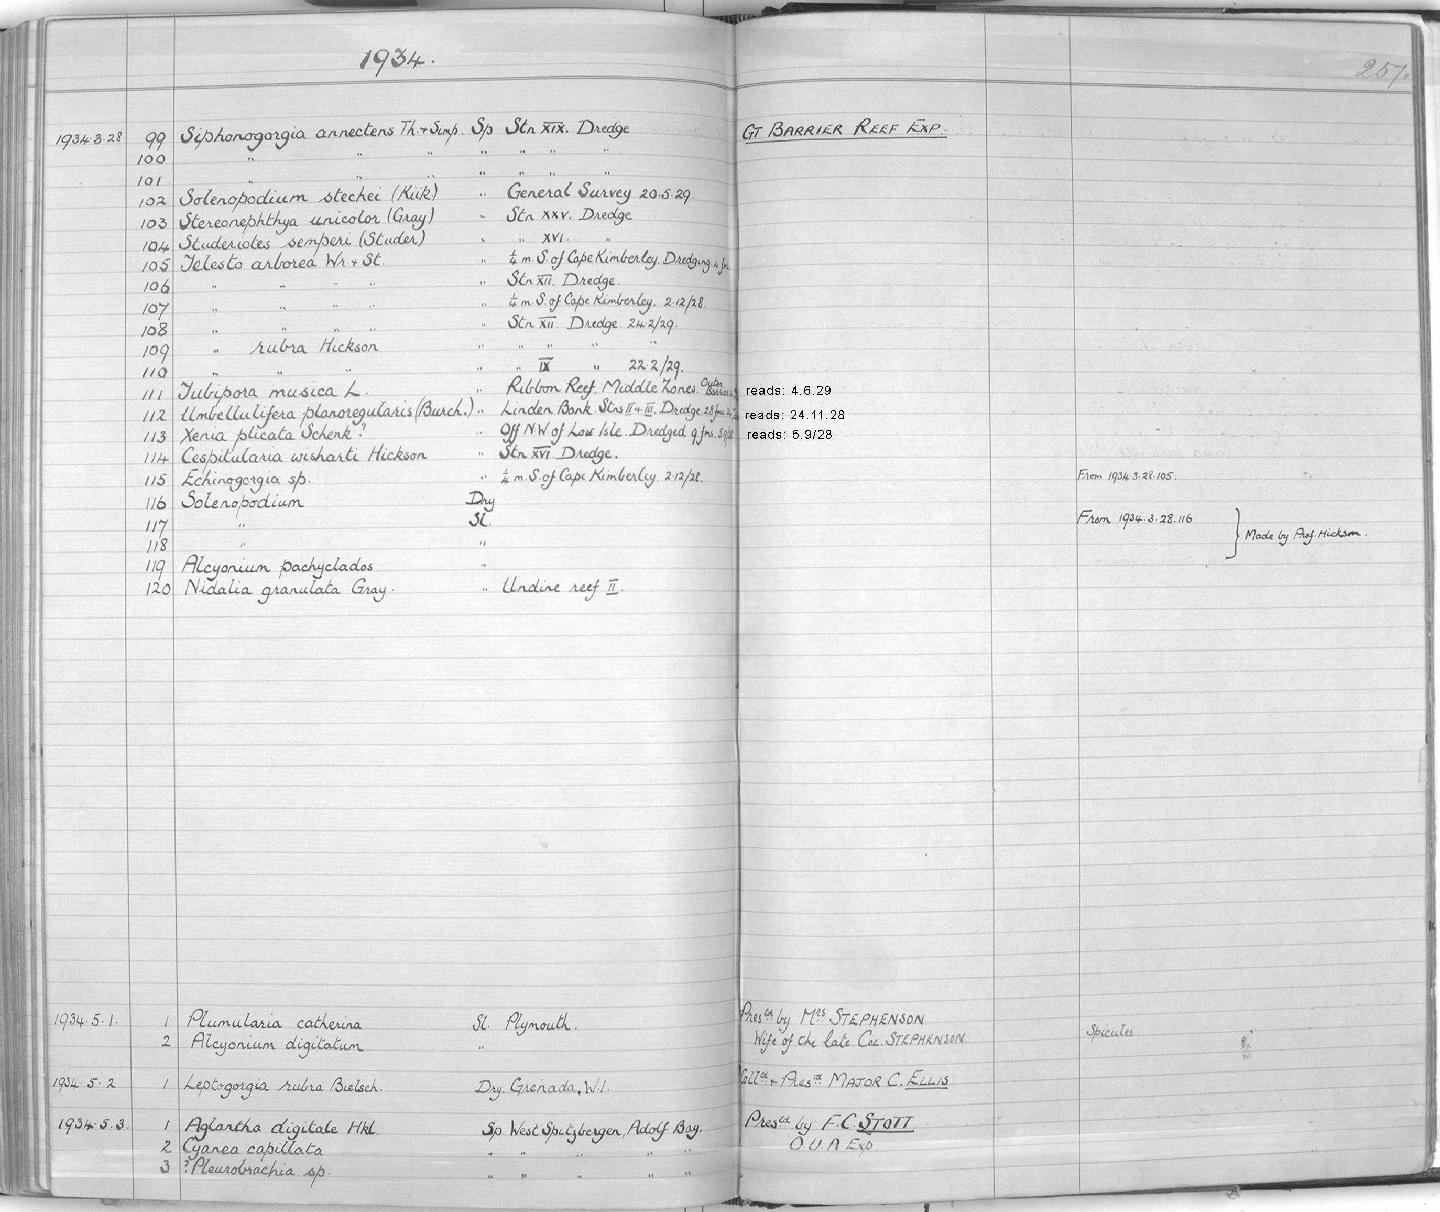 1934.
257.
1934.3.28 99 Siphonogorgia annectens Th. + Simp. Sp Stn XIX. Dredge GT BARRIER REEF EXP.
100 " " " " " " "
101 " " " " " " "
102 Solenopodium stechei (Kük) " General Survey 20.5.29
103 Stereonephthya unicolor (Gray) " Stn XXV. Dredge
104 Studeriotes semperi (Studer) " " XVI. "
105 Telesto arborea Wr. + St. " ¼ m. S. of Cape Kimberley. Dredging. 4 fms
106 " " " " " Stn XII. Dredge.
107 " " " " " ¼ m. S. of Cape Kimberley. 2.12/28.
108 " " " " " Stn XII. Dredge. 24.2/29.
109 " rubra Hickson " " " " "
110 " " " " " IX " 22.2/29.
111 Tubipora musica L. " Ribbon Reef. Middle Zones. Outer Barrier reads: 4.6.29
112 Umbellulifera planoregularis (Burch.) " Linden Bank. Stns II + III. Dredge 28 fms reads: 24.11.28
113 Xenia plicata Schenk? " Off N.W of Low Isle. Dredged 9 fms. 5.9/28 reads: 5.9/28
114 Cespitularia wisharti Hickson " Stn XVI. Dredge.
115 Echinogorgia sp. " ¼ m. S. of Cape Kimberley. 2.12/28. From 1934.3.28.105.
116 Solenopodium Dry
117 " Sl. From 1934.3.28.116
118 " " Made by Prof. Hickson.
119 Alcyonium pachyclados. "
120 Nidalia granulata Gray. " Undine reef II.
1934.5.1. 1 Plumularia catherina Sl. Plymouth. Presed by Mrs STEPHENSON
2 Alcyonium digitatum " Wife of the late Col. STEPHENSON. Spicules
1934.5.2 1 Leptogorgia rubra Bielsch. Dry. Grenada, W.I. Colld + Presd MAJOR C. ELLIS
1934.5.3. 1 Aglantha digitale Hkl. Sp. West Spitzbergen, Adolf Bay. Presed by F.C. STOTT
2 Cyanea capillata " " " " " O.U.A Exp
3 ?Pleurobrachia sp. " " " " "